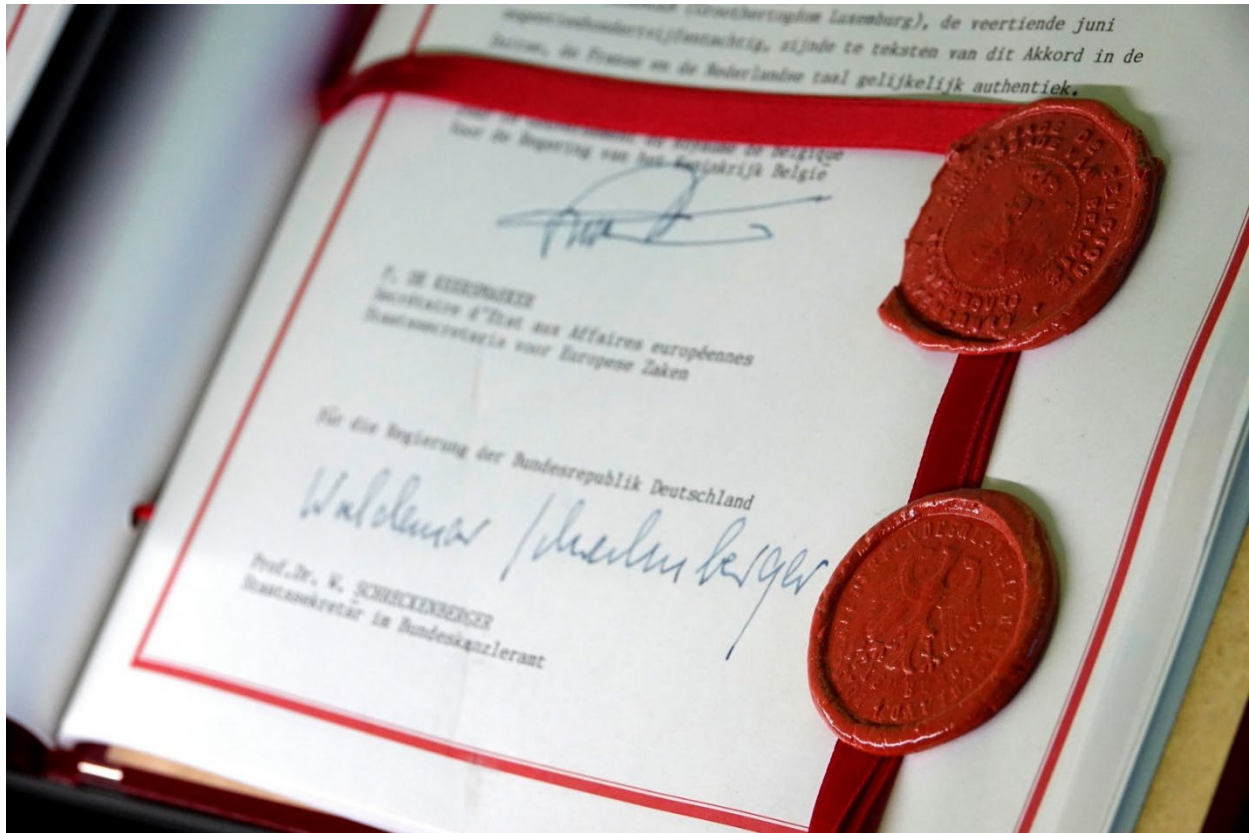 (Groothertogdom Luxemburg), de veertiende juni
negentienhonderdvijfentachtig, zijnde te teksten van dit Akkord in de
Duitse, de Franse en de Nederlandse taal gelijkelijk authentiek.
Royaume de Belgique
Voor de Regering van het Koninkrijk België
P. DE KEERSMAEKER
Secrétaire d'Etat aux Affaires européennes
Staatssecretaris voor Europese Zaken
Für die Regierung der Bundesrepublik Deutschland
Waldemar Schreckenberger
Prof.Dr. W. SCHRECKENBERGER
Staatssekretär im Bundeskanzleramt